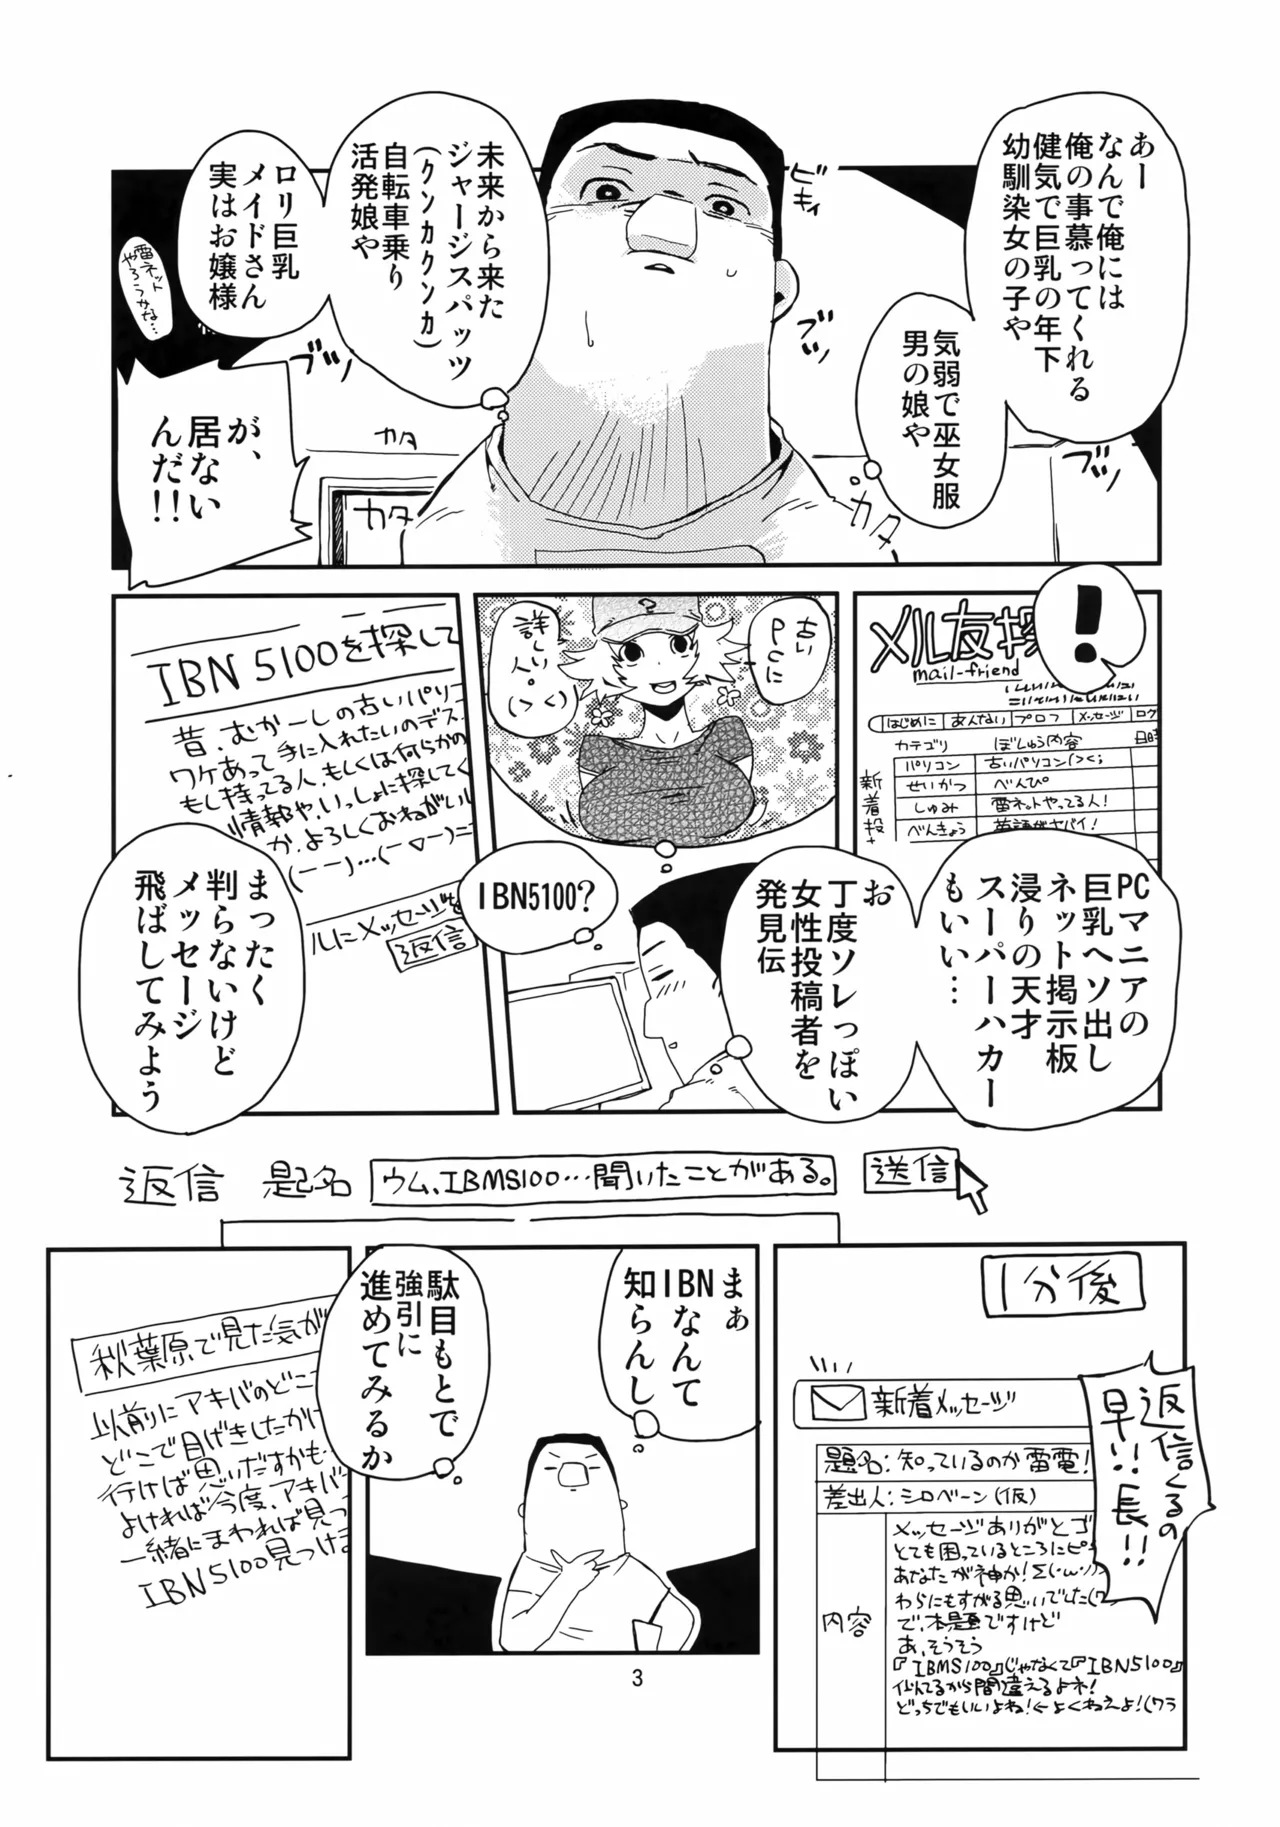 あー
なんで俺には
俺の事慕ってくれる
健気で巨乳の年下
幼馴染女の子や
気弱で巫女服
男の娘や
ビキィ
ブツ
ブツ
未来から来た
ジャージスパッツ
(クンカクンカ)
自転車乗り
活発娘や
ロリ巨乳
メイドさん
実はお嬢様
雷ネット
やろうかな…
が、
居ない
んだ!!
カタ
カタ
カタ
カタ
!
メル友探
mail-friend
はじめに
あんない
プロフ
メッセージ
ログ
カテゴリ
ぼしゅう内容
日時
新着投
パソコン
古いパソコン(><;
せいかつ
べんぴ
しゅみ
雷ネットやってる人!
べんきょう
英語がヤバイ!
PCマニアの
巨乳ヘソ出し
ネット掲示板
浸りの天才
スーパーハカー
もいい…
古い
PCに
詳しい
人。
(><)
お
丁度ソレっぽい
女性投稿者を
発見伝
IBN5100?
IBN5100を探して
昔、むかーしの古いパソコ
ワケあって手に入れたいのデス
もし持ってる人、もしくは何らかの
情報や、いっしょに探してく
か、よろしくおねがいし
(ーー)…(ー▽ー)ニ
ルにメッセージを
返信
まったく
判らないけど
メッセージ
飛ばしてみよう
返信 題名 ウム、IBMS100…聞いたことがある。 送信
1分後
新着メッセージ
返信くるの
早!!長!!
題名:知っているのか雷電!
差出人:シロベーン(仮)
内容
メッセージありがとゴ
とても困っているところにピ
あなたが神か!Σ(・ω・ノ)
わらにもすがる思いでした(ワ
で、本題ですけど
あ、そうそう
『IBMS100』じゃなくて『IBN5100』
似てるから間違えるよネ!
どっちでもいいよね!←よくねえよ!(ワラ
まぁ
IBNなんて
知らんし
駄目もとで
強引に
進めてみるか
秋葉原で見た気が
以前にアキバのどこ
どこで目げきしたかけ
行けば思いだすかも
よければ今度、アキバ
一緒にまわれば見つ
IBN5100見つけま
3